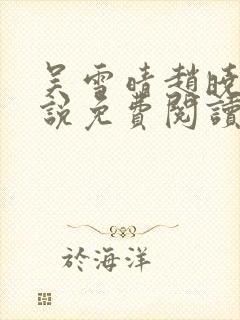 吴雪晴趙曉
說免費閱讀
於海洋